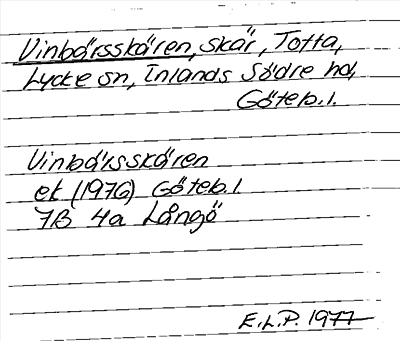 Vinbärsskären, skär, Tofta,
Lycke sn, Inlands Södre hd,
Göteb. l.
Vinbärsskären
ek (1976) Göteb. l.
7B 4a Långö
E.L.P. 1977